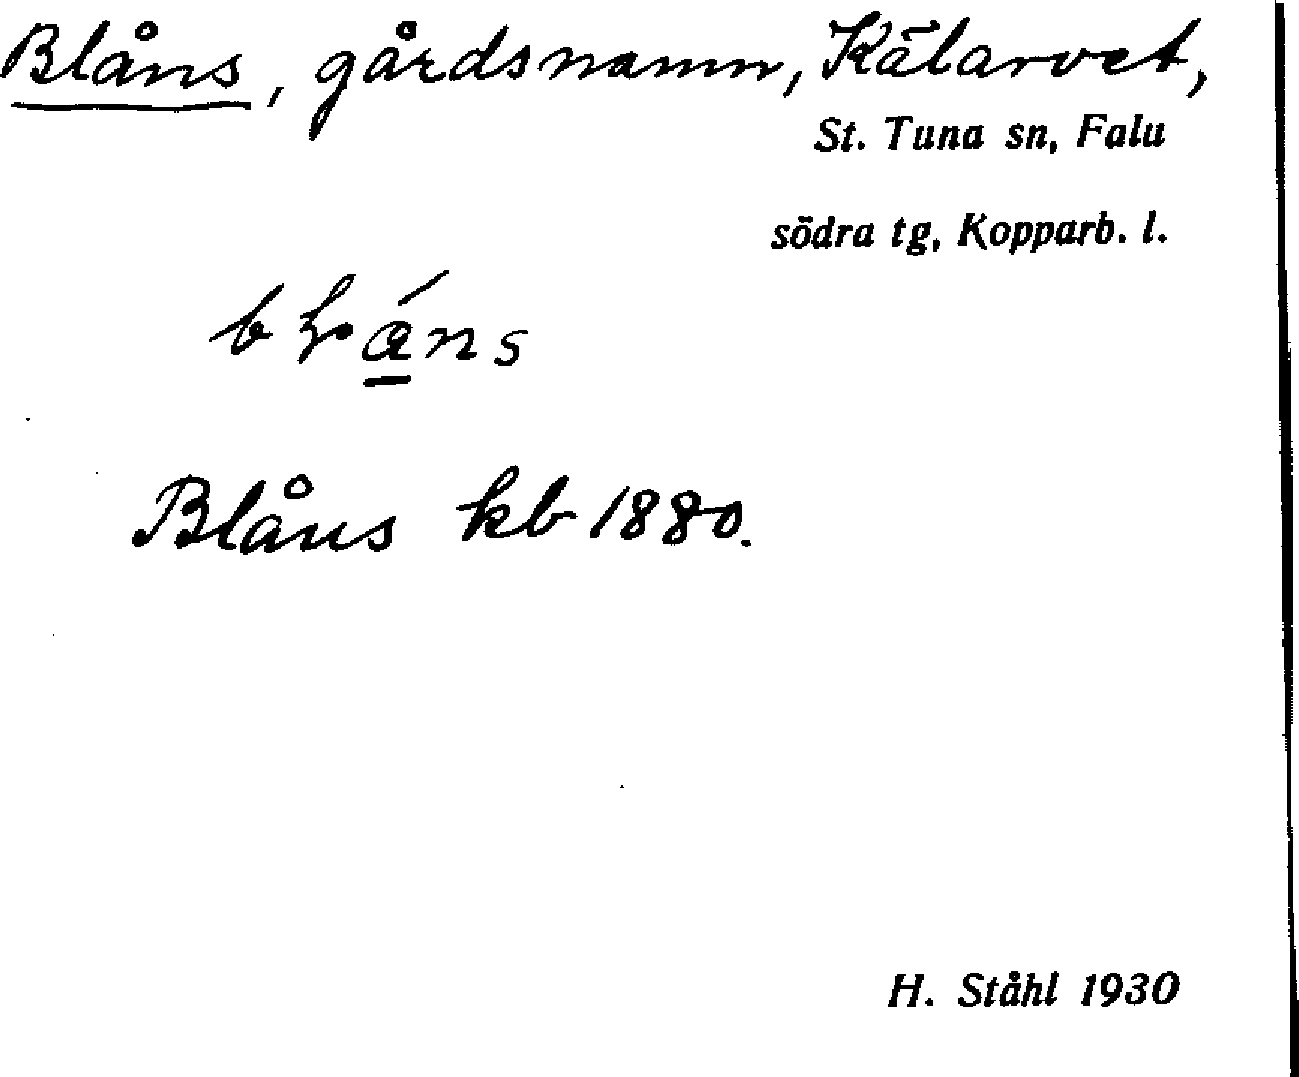 Blåns, gårdsnamn, Kälarvet,
St. Tuna sn, Falu
södra tg, Kopparb. l.
Blåns kb 1880.
H. Ståhl 1930